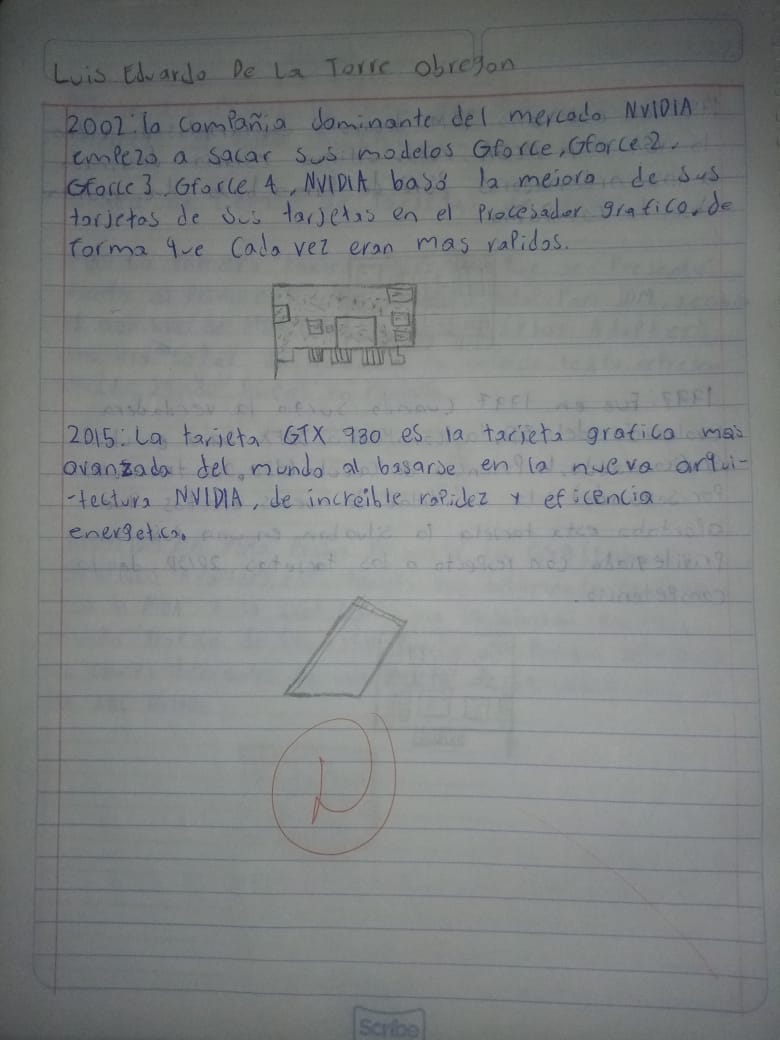 Luis Eduardo De La Torre Obregon
2002: la compañia dominante del mercado NVIDIA
empezo a sacar sus modelos Gforce, Gforce 2,
Gforce 3, Gforce 4, NVIDIA basó la mejora de sus
tarjetas de sus tarjetas en el procesador grafico, de
forma que cada vez eran mas rapidos.
2015: La tarjeta GTX 980 es la tarjeta grafica mas
avanzada del mundo al basarse en la nueva arqui-
-tectura NVIDIA, de increible rapidez y eficencia
energetica.
Scribe